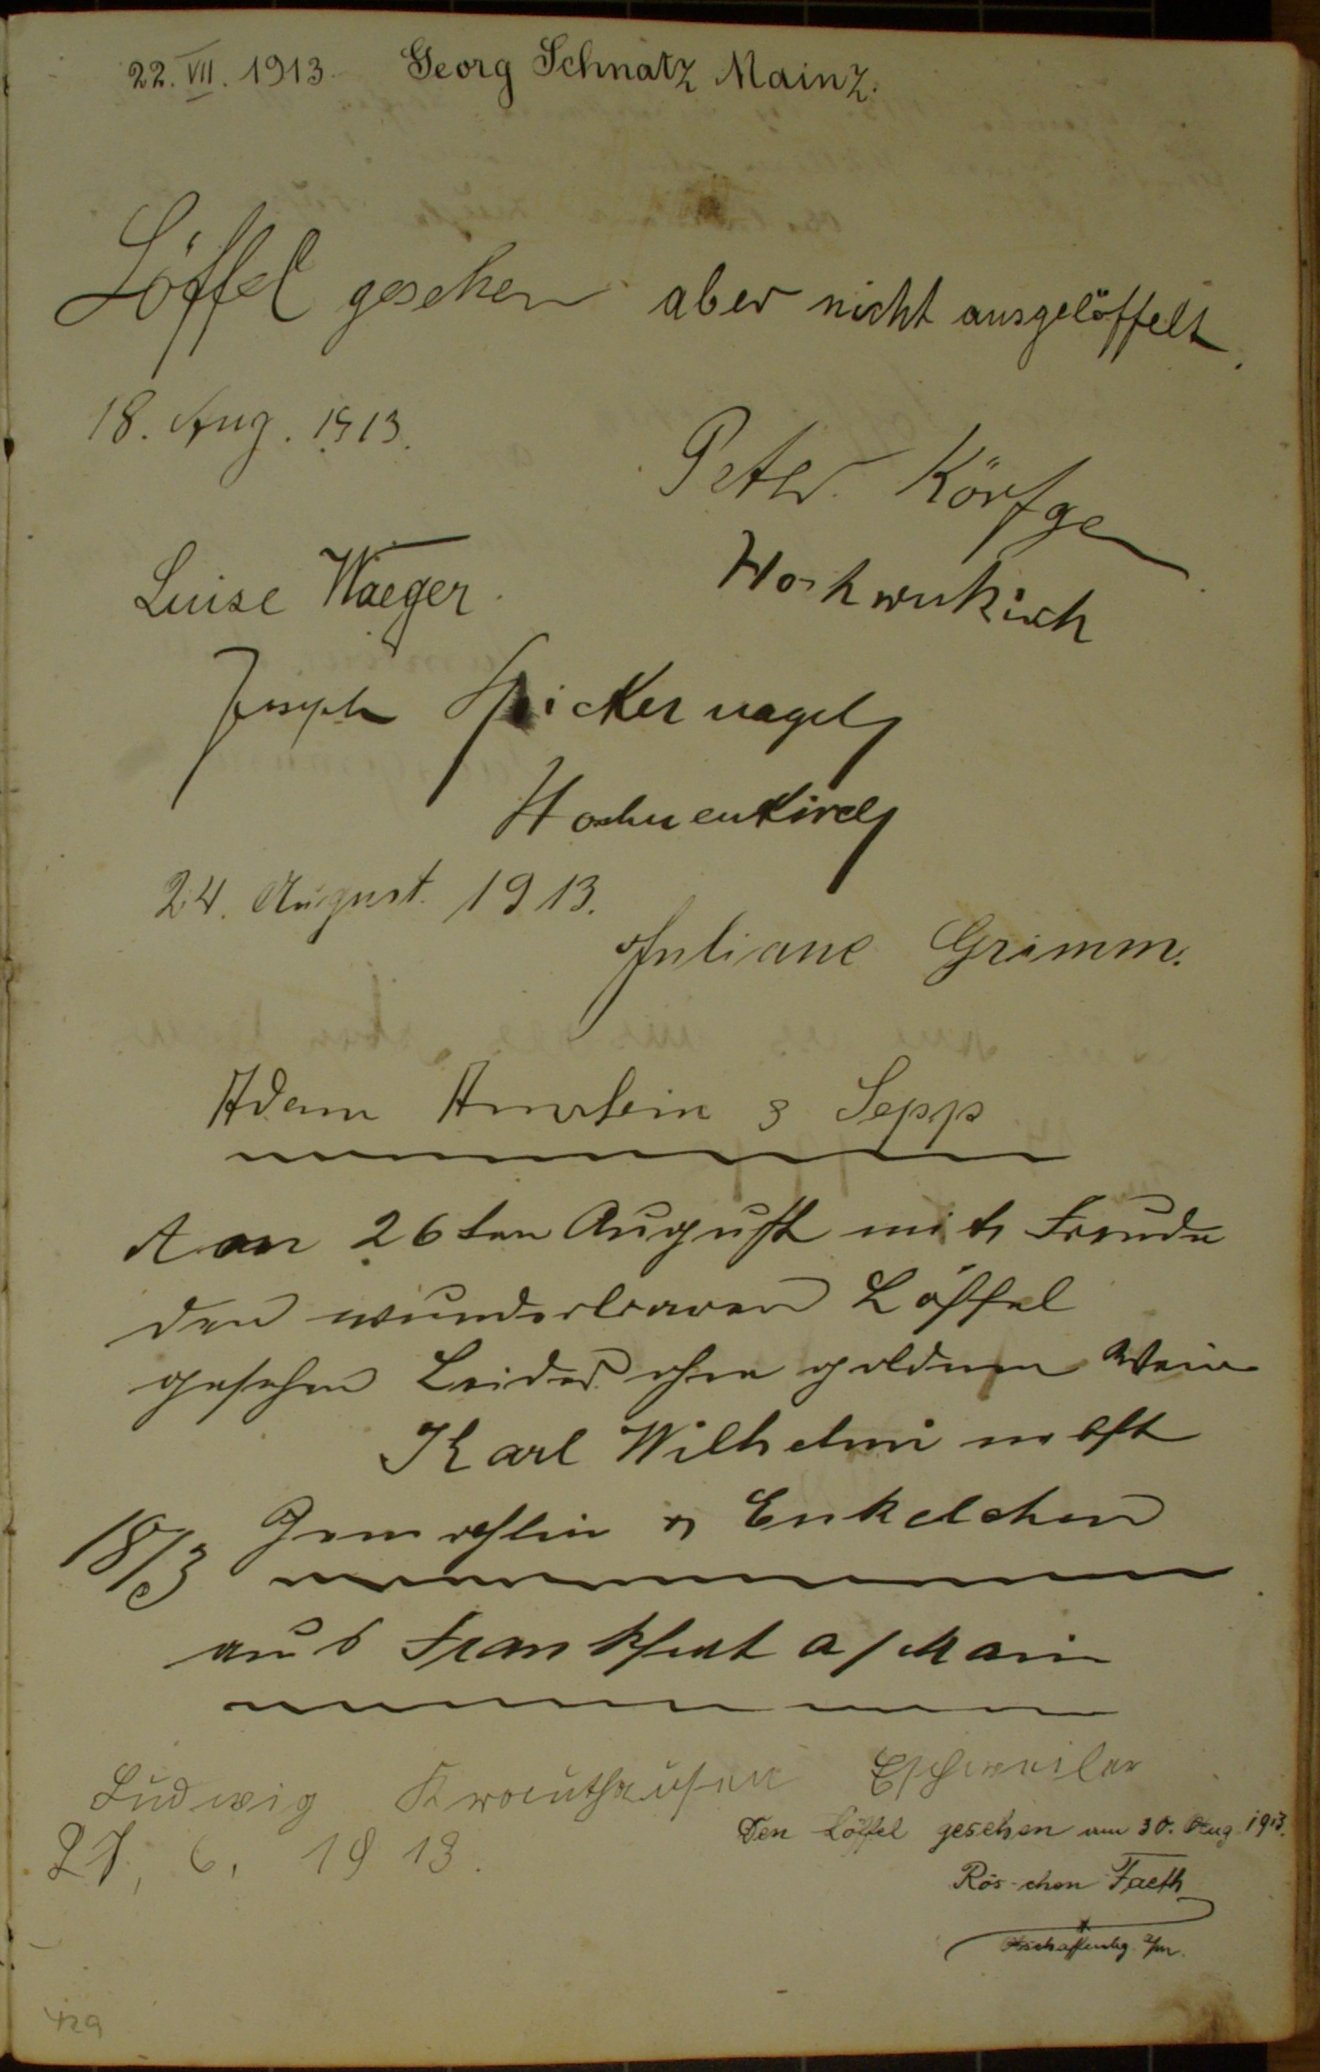 22. VII. 1913. Georg Schnatz Mainz.
Löffel gesehen aber nicht ausgelöffelt.
18. Aug. 1913.
Peter Körfgen
Hochneukirch
Luise Waeger.
Joseph Spickernagel
Hochneukirch
24. August. 1913.
Juliane Grimm.
Adam & Sepp
Am 26ten August mit Freude
den wunderbaren Löffel
gesehen Leider ohne goldnen Wein
Karl Wilhelmi nebst
Gemahlin & Enkelchen
18/3
aus Frankfurt a/Main
Ludwig Krauthausen Eschweiler
27, 6. 1913.
Den Löffel gesehen am 30. Aug. 1913.
Rös-chen Faeth
Aschaffenbg. a/m.
429